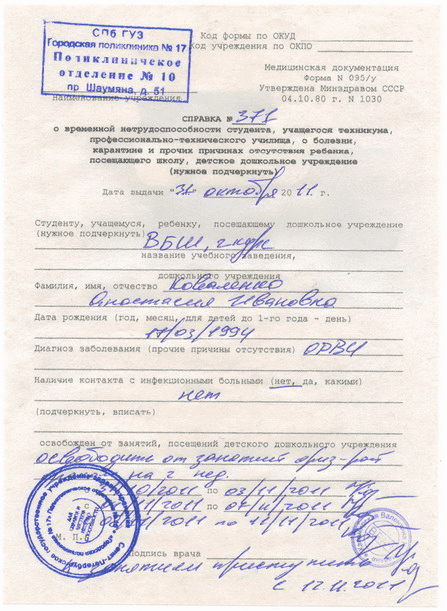 СПб ГУЗ
Городская поликлиника № 17
Поликлиническое
отделение № 10
пр. Шаумяна, д. 51
Код формы по ОКУД
Код учреждения по ОКПО
наименование учреждения
Медицинская документация
Форма N 095/у
Утверждена Минздравом СССР
04.10.80 г. N 1030
СПРАВКА № 371
о временной нетрудоспособности студента, учащегося техникума,
профессионально-технического училища, о болезни,
карантине и прочих причинах отсутствия ребенка,
посещающего школу, детское дошкольное учреждение
(нужное подчеркнуть)
Дата выдачи "31" октября 2011 г.
Студенту, учащемуся, ребенку, посещающему дошкольное учреждение
(нужное подчеркнуть)
ВБШ,
название учебного заведения,
дошкольного учреждения
Фамилия, имя, отчество Коваленко
Анастасия Ивановна
Дата рождения (год, месяц, для детей до 1-го года - день)
17/03/1994
Диагноз заболевания (прочие причины отсутствия) ОРВИ
Наличие контакта с инфекционными больными (нет, да, какими)
нет
(подчеркнуть, вписать)
освобожден от занятий, посещений детского дошкольного учреждения
освободить от занятий физ-рой
на 2 нед.
/2011 по 03/11/2011
/2011 по
/2011 по 11/11/2011
М. П.
Подпись врача
к занятиям приступить
с 12.11.2011